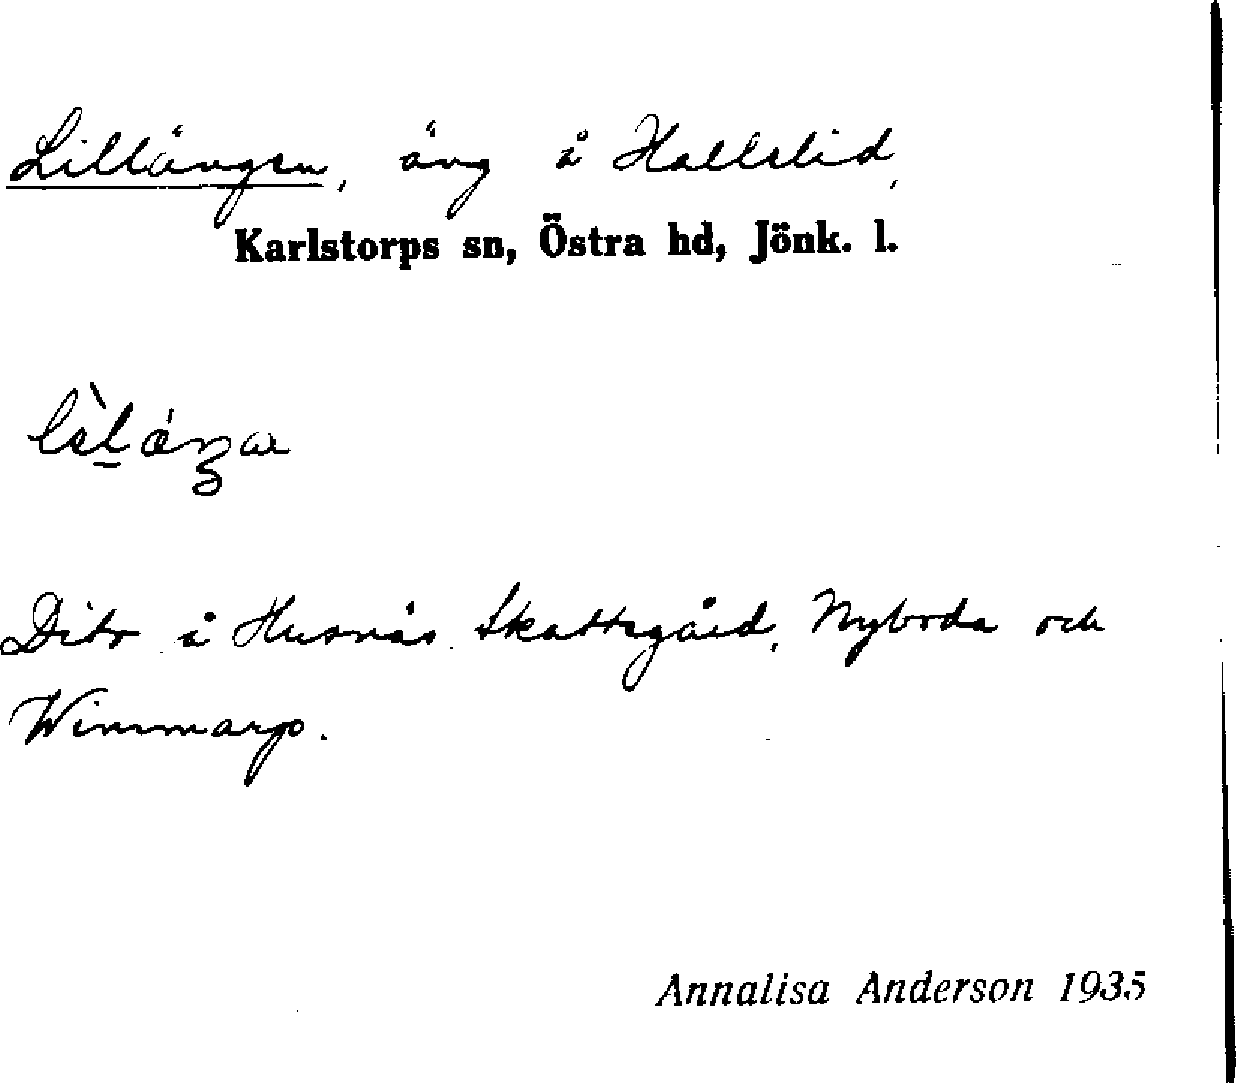 Lillängen, äng å Hallslid,
Karlstorps sn, Östra hd, Jönk. l.
Dito å Husnäs Skattegård, Nyboda och
Wimmarp.
Annalisa Anderson 1935